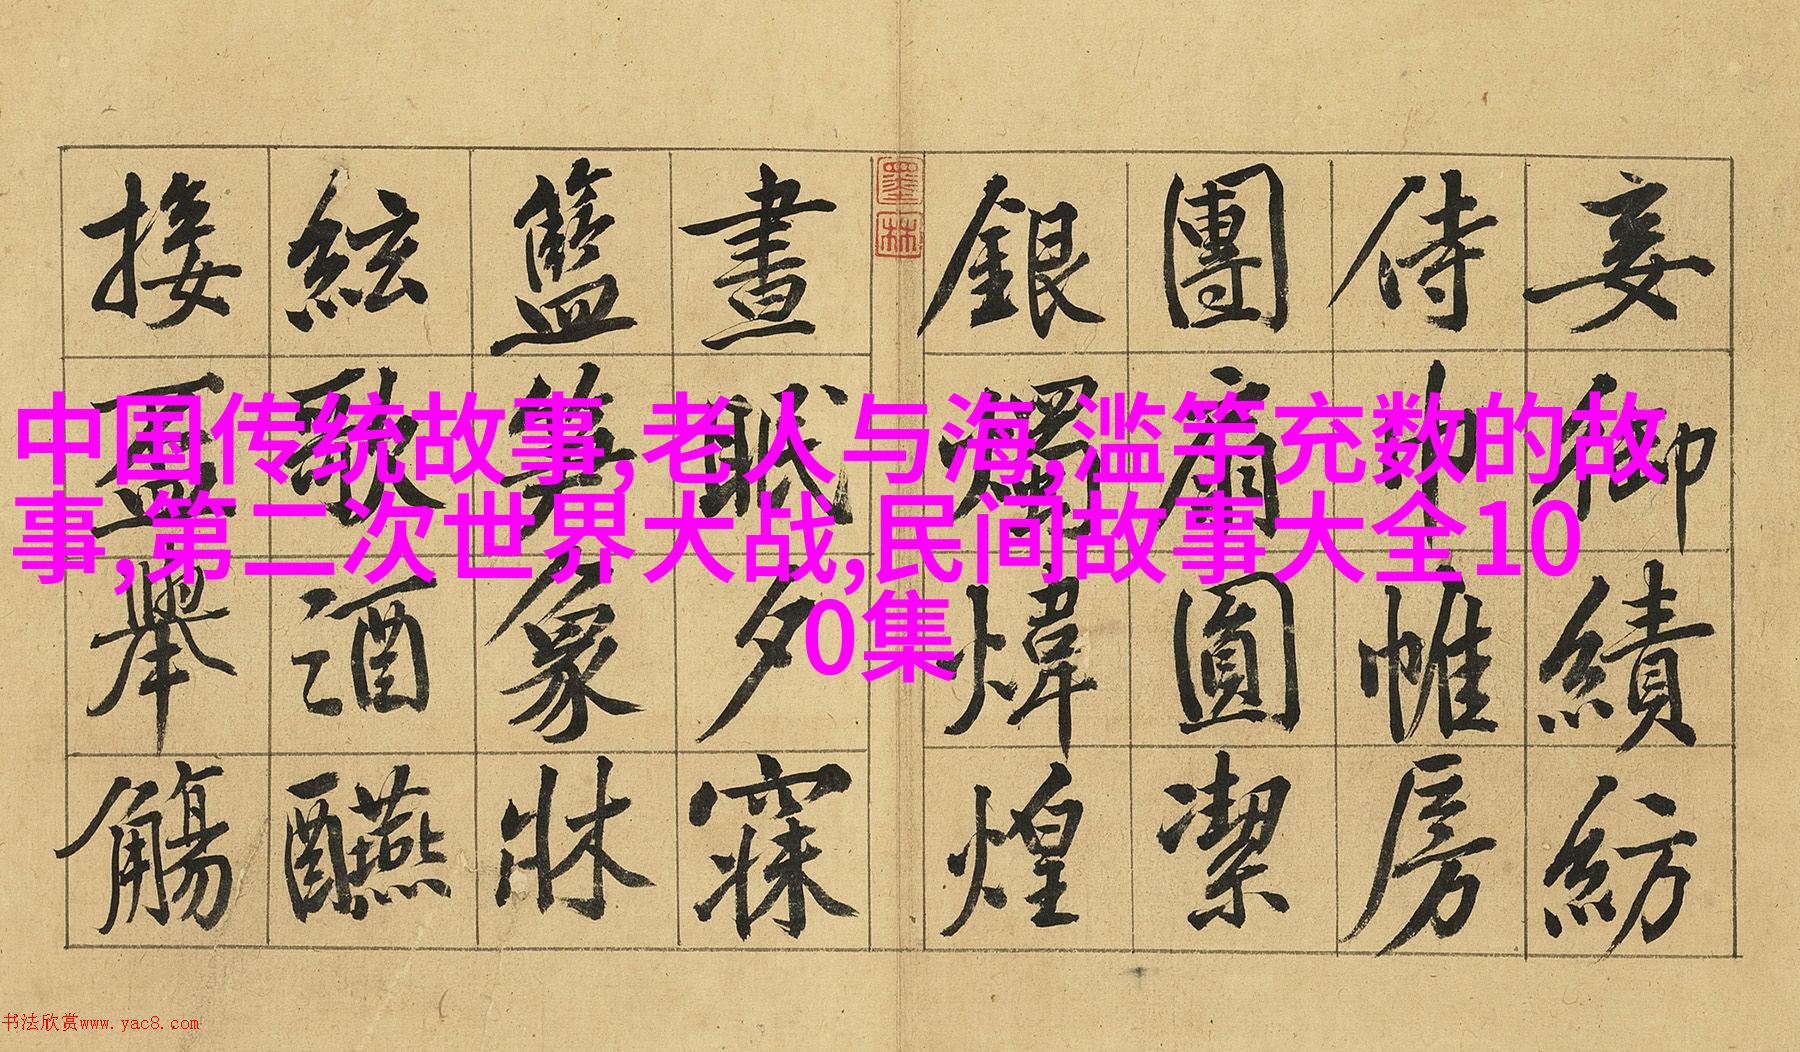 中国传统故事,老人与海,滥竽充数的故
事,第二次世界大战,民间故事大全10
0集
妾御績紡
侍巾帷房
團扇圓潔
銀燭煒煌
墨林
晝眠夕寐
籃笋象牀
絃歌酒醼
接盃舉觴
书法欣赏www.yac8.com